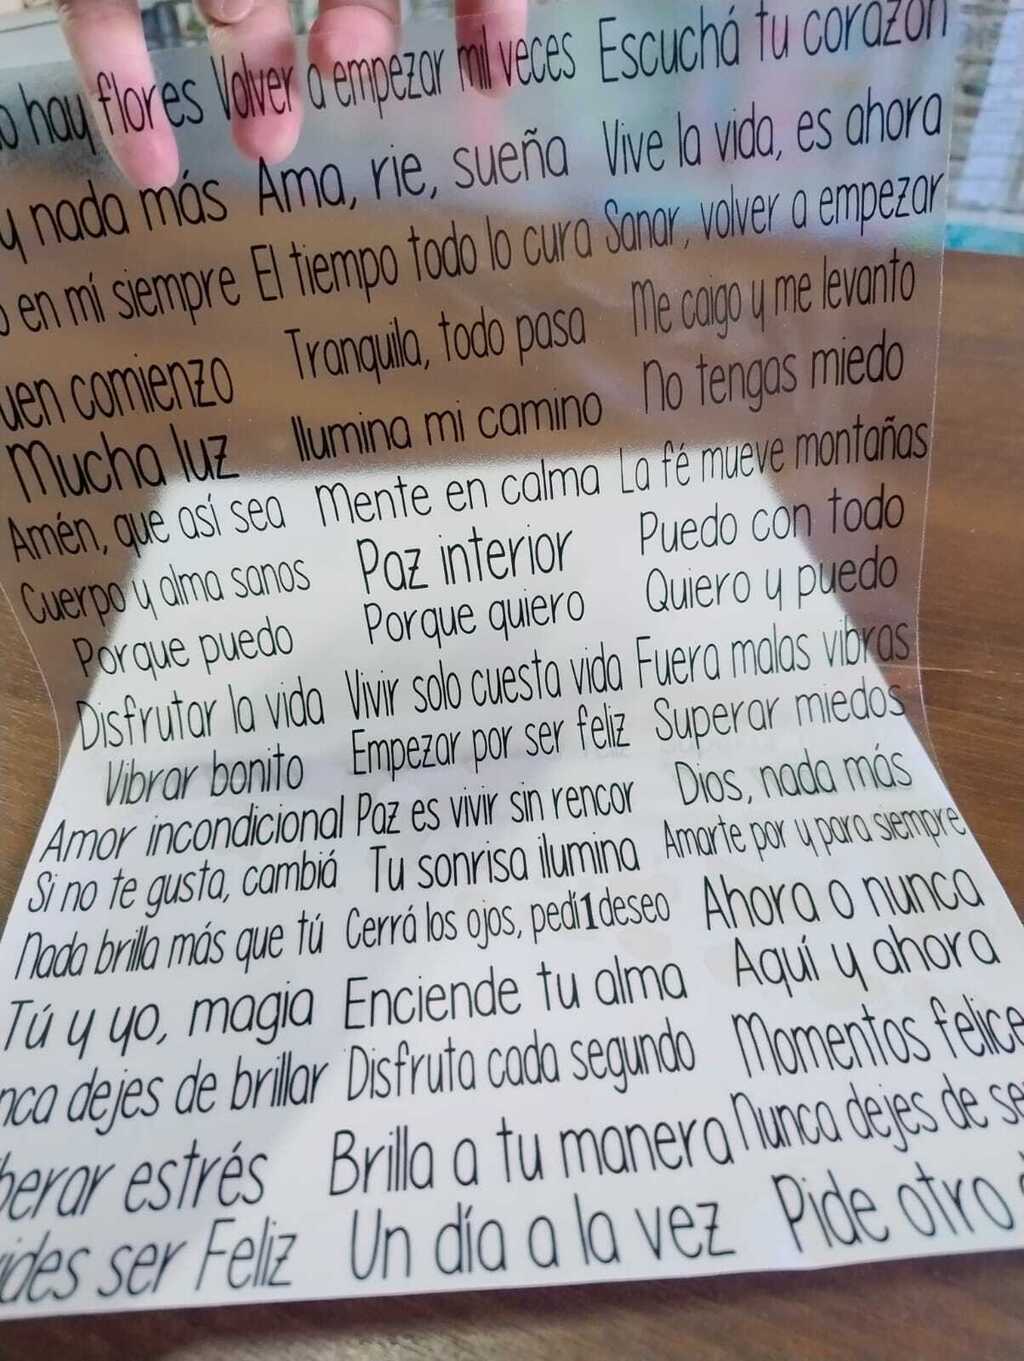 hay flores Volver a empezar mil veces Escuchá tu corazón
y nada más Ama, rie, sueña Vive la vida, es ahora
en mí siempre El tiempo todo lo cura Sanar, volver a empezar
comienzo Tranquila, todo pasa Me caigo y me levanto
Mucha luz Ilumina mi camino No tengas miedo
Amén, que así sea Mente en calma La fé mueve montañas
Cuerpo y alma sanos Paz interior Puedo con todo
Porque puedo Porque quiero Quiero y puedo
Disfrutar la vida Vivir solo cuesta vida Fuera malas vibras
Vibrar bonito Empezar por ser feliz Superar miedos
Amor incondicional Paz es vivir sin rencor Dios, nada más
Si no te gusta, cambiá Tu sonrisa ilumina Amarte por y para siempre
Nada brilla más que tú Cerrá los ojos, pedí 1 deseo Ahora o nunca
Tú y yo, magia Enciende tu alma Aquí y ahora
dejes de brillar Disfruta cada segundo Momentos felice
estrés Brilla a tu manera Nunca dejes de se
ser Feliz Un día a la vez Pide otro